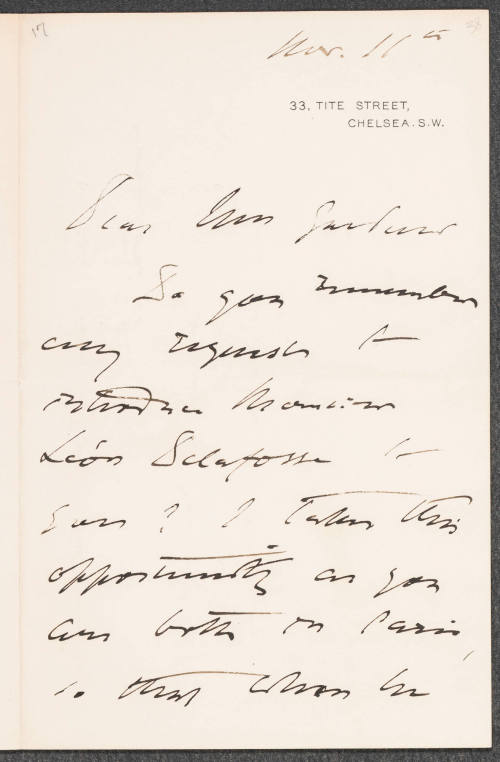 17
38
Nov. 11th
33, TITE STREET,
CHELSEA. S.W.
Dear Mrs Gardner
Do you remember
my request to
introduce Monsieur
Léon Delafosse to
you? I take this
opportunity as you
are both in Paris,
so that when he